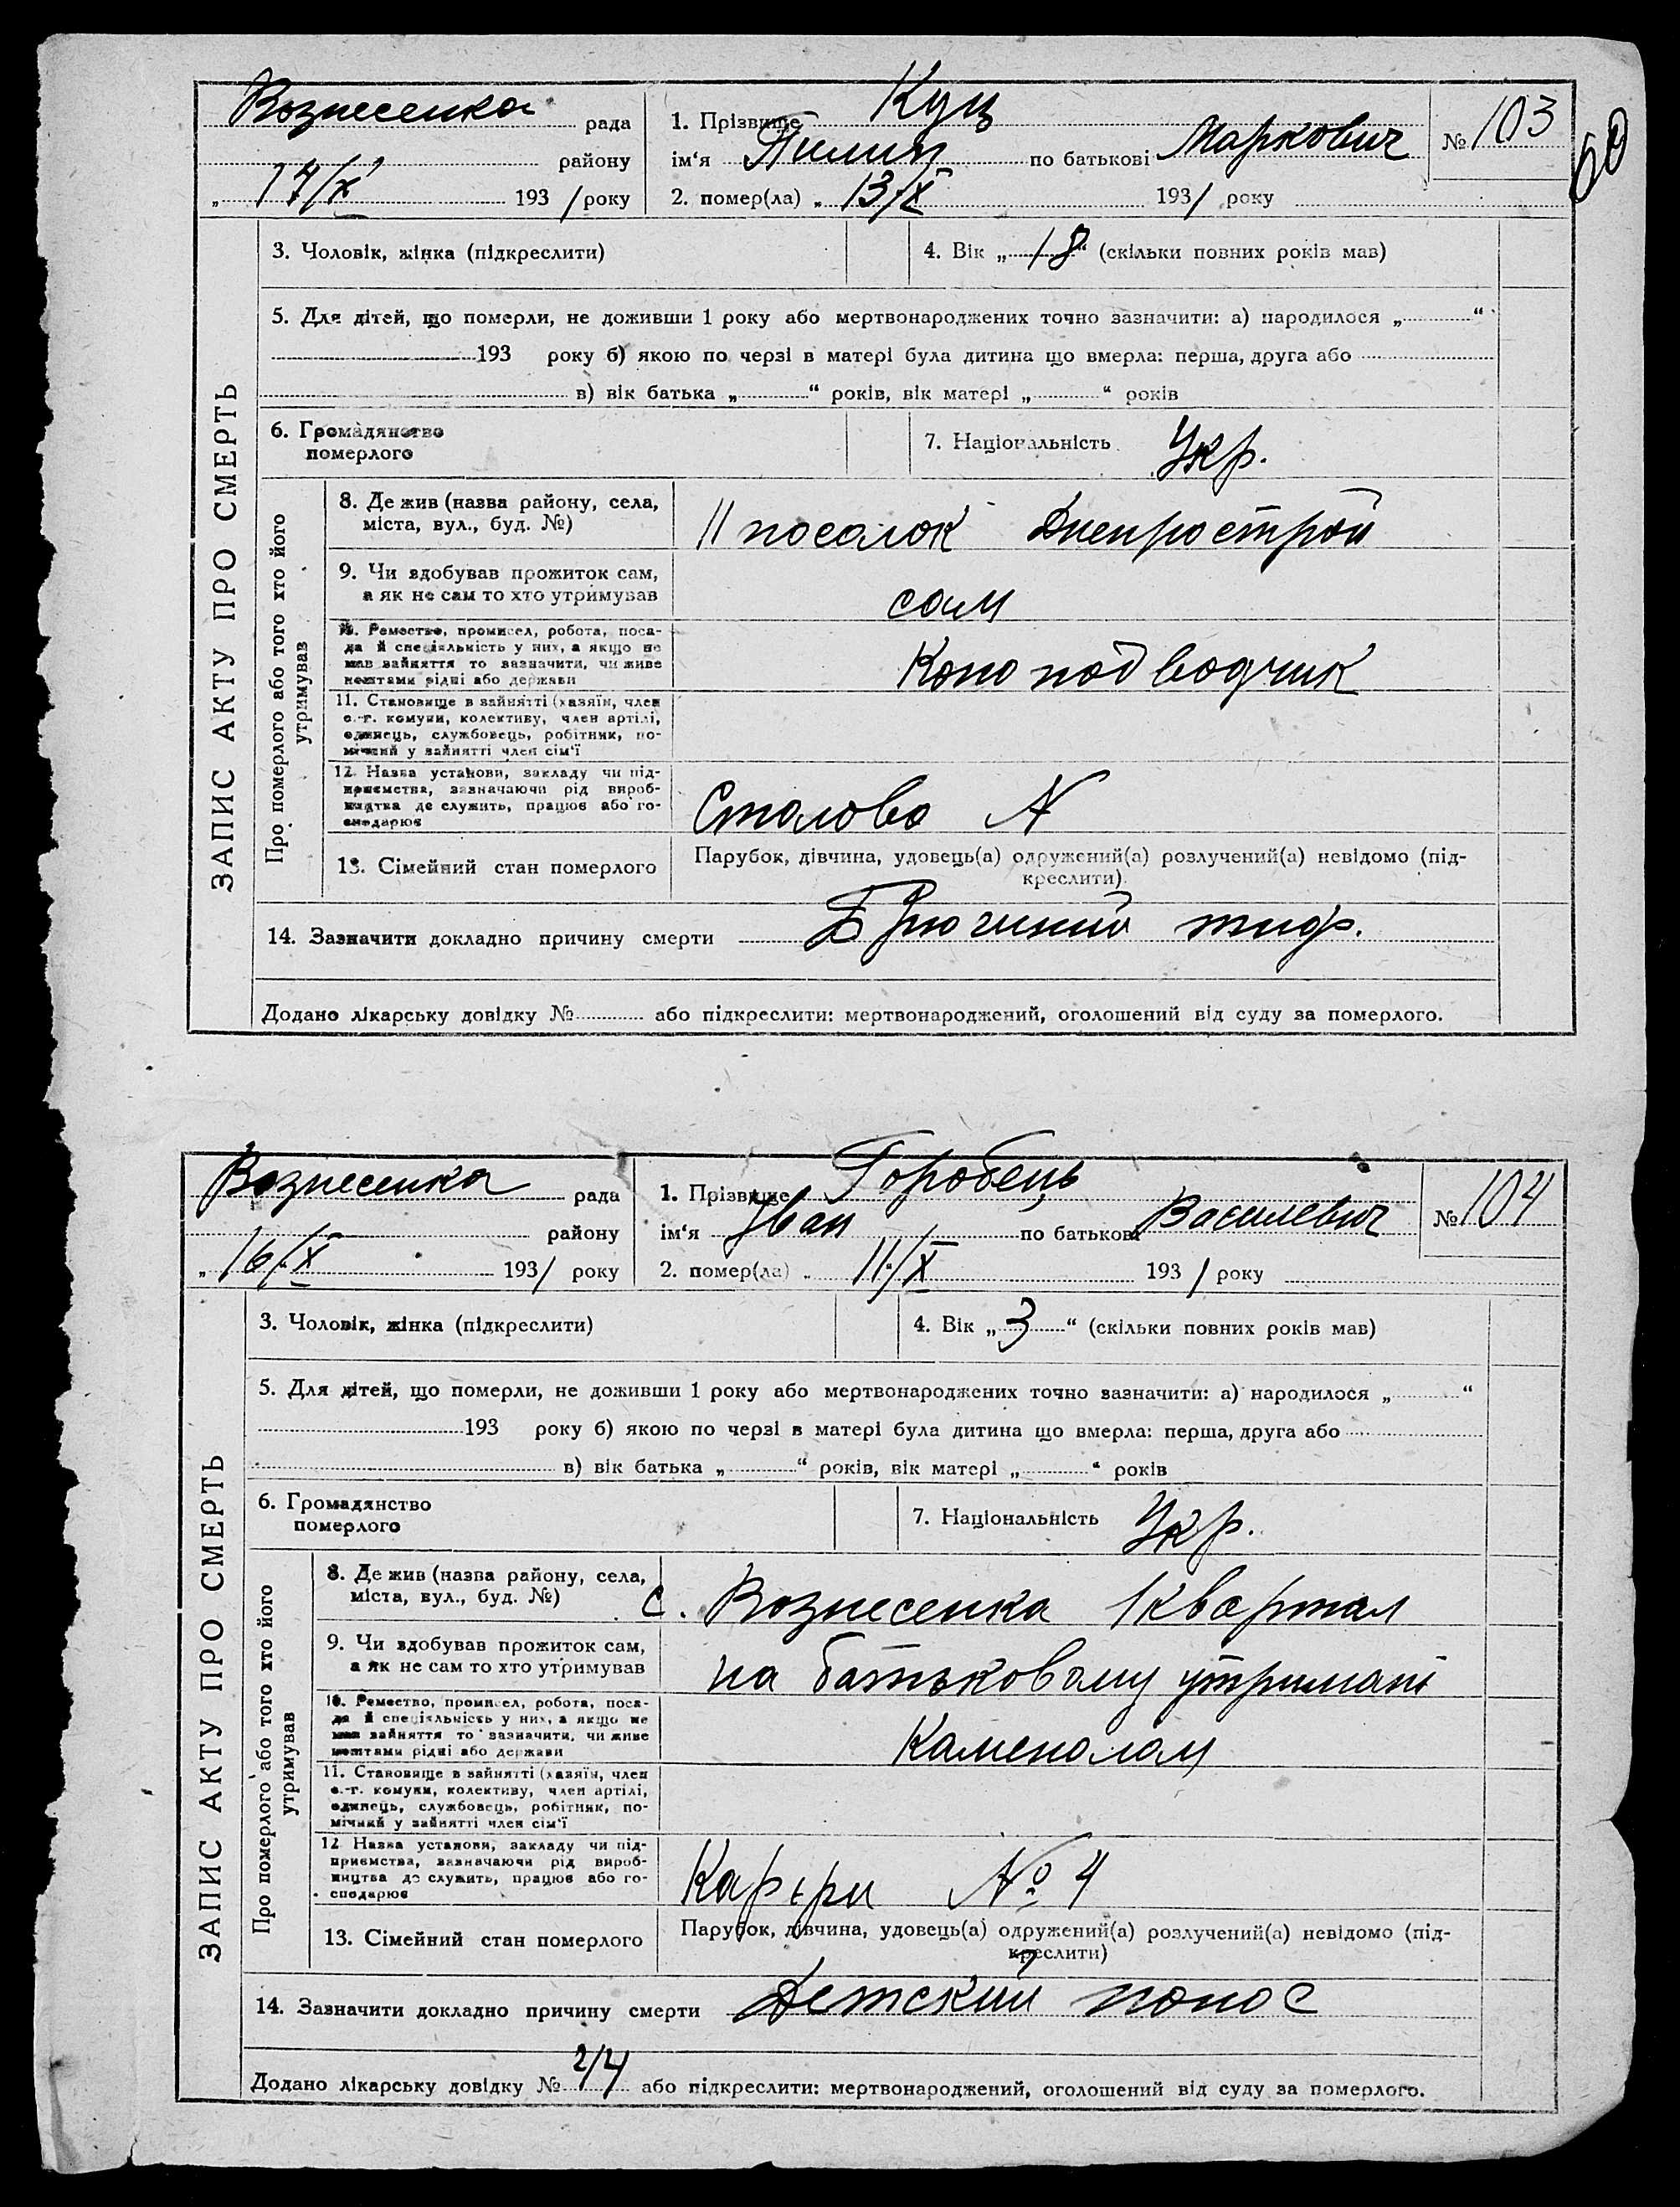 Вознесенка рада
району
„ 14/X 1931 року
1. Прізвище Куц
ім‘я Пилип по батькові Маркович
2. помер(ла) „ 13/X 1931 року
№ 103
60
ЗАПИС АКТУ ПРО СМЕРТЬ
3. Чоловік, жінка (підкреслити)
4. Вік „ 18 “ (скільки повних років мав)
5. Для дітей, що померли, не доживши 1 року або мертвонароджених точно зазначити: а) народилося „ “
193 року б) якою по черзі в матері була дитина що вмерла: перша, друга або
в) вік батька „ “ років, вік матері „ “ років
6. Громадянство
померлого
7. Національність Укр.
Про померлого або того хто його
утримував
8. Де жив (назва району, села,
міста, вул., буд. №)
11 поселок Днепрострой
9. Чи здобував прожиток сам,
а як не сам то хто утримував
сам
10. Ремество, промисел, робота, поса-
да й спеціяльність у них, а якщо не
мав зайняття то зазначити, чи живе
коштами рідні або держави
Коноподводчик
11. Становище в зайнятті (хазяїн, член
с.-г. комуни, колективу, член артілі,
одинець, службовець, робітник, по-
мічний у зайнятті член сім‘ї
12. Назва установи, закладу чи під-
приємства, зазначаючи рід вироб-
ництва де служить, працює або го-
сподарює
Столова №
13. Сімейний стан померлого
Парубок, дівчина, удовець(а) одружений(а) розлучений(а) невідомо (під-
креслити)
14. Зазначити докладно причину смерти Брюшний тиф.
Додано лікарську довідку № або підкреслити: мертвонароджений, оголошений від суду за померлого.
Вознесенка рада
району
„ 16/X 1931 року
1. Прізвище Горобець
ім‘я Іван по батькові Василевич
2. помер(ла) „ 11/X 1931 року
№ 104
ЗАПИС АКТУ ПРО СМЕРТЬ
3. Чоловік, жінка (підкреслити)
4. Вік „ 3 “ (скільки повних років мав)
5. Для дітей, що померли, не доживши 1 року або мертвонароджених точно зазначити: а) народилося „ “
193 року б) якою по черзі в матері була дитина що вмерла: перша, друга або
в) вік батька „ “ років, вік матері „ “ років
6. Громадянство
померлого
7. Національність Укр.
Про померлого або того хто його
утримував
8. Де жив (назва району, села,
міста, вул., буд. №)
с. Вознесенка 1 квартал
9. Чи здобував прожиток сам,
а як не сам то хто утримував
на батьковому утримані
10. Ремество, промисел, робота, поса-
да й спеціяльність у них, а якщо не
мав зайняття то зазначити, чи живе
коштами рідні або держави
Каменолом
11. Становище в зайнятті (хазяїн, член
с.-г. комуни, колективу, член артілі,
одинець, службовець, робітник, по-
мічний у зайнятті член сім‘ї
12. Назва установи, закладу чи під-
приємства, зазначаючи рід вироб-
ництва де служить, працює або го-
сподарює
Карєри № 4
13. Сімейний стан померлого
Парубок, дівчина, удовець(а) одружений(а) розлучений(а) невідомо (під-
креслити)
14. Зазначити докладно причину смерти Детский понос
Додано лікарську довідку № 2/4 або підкреслити: мертвонароджений, оголошений від суду за померлого.